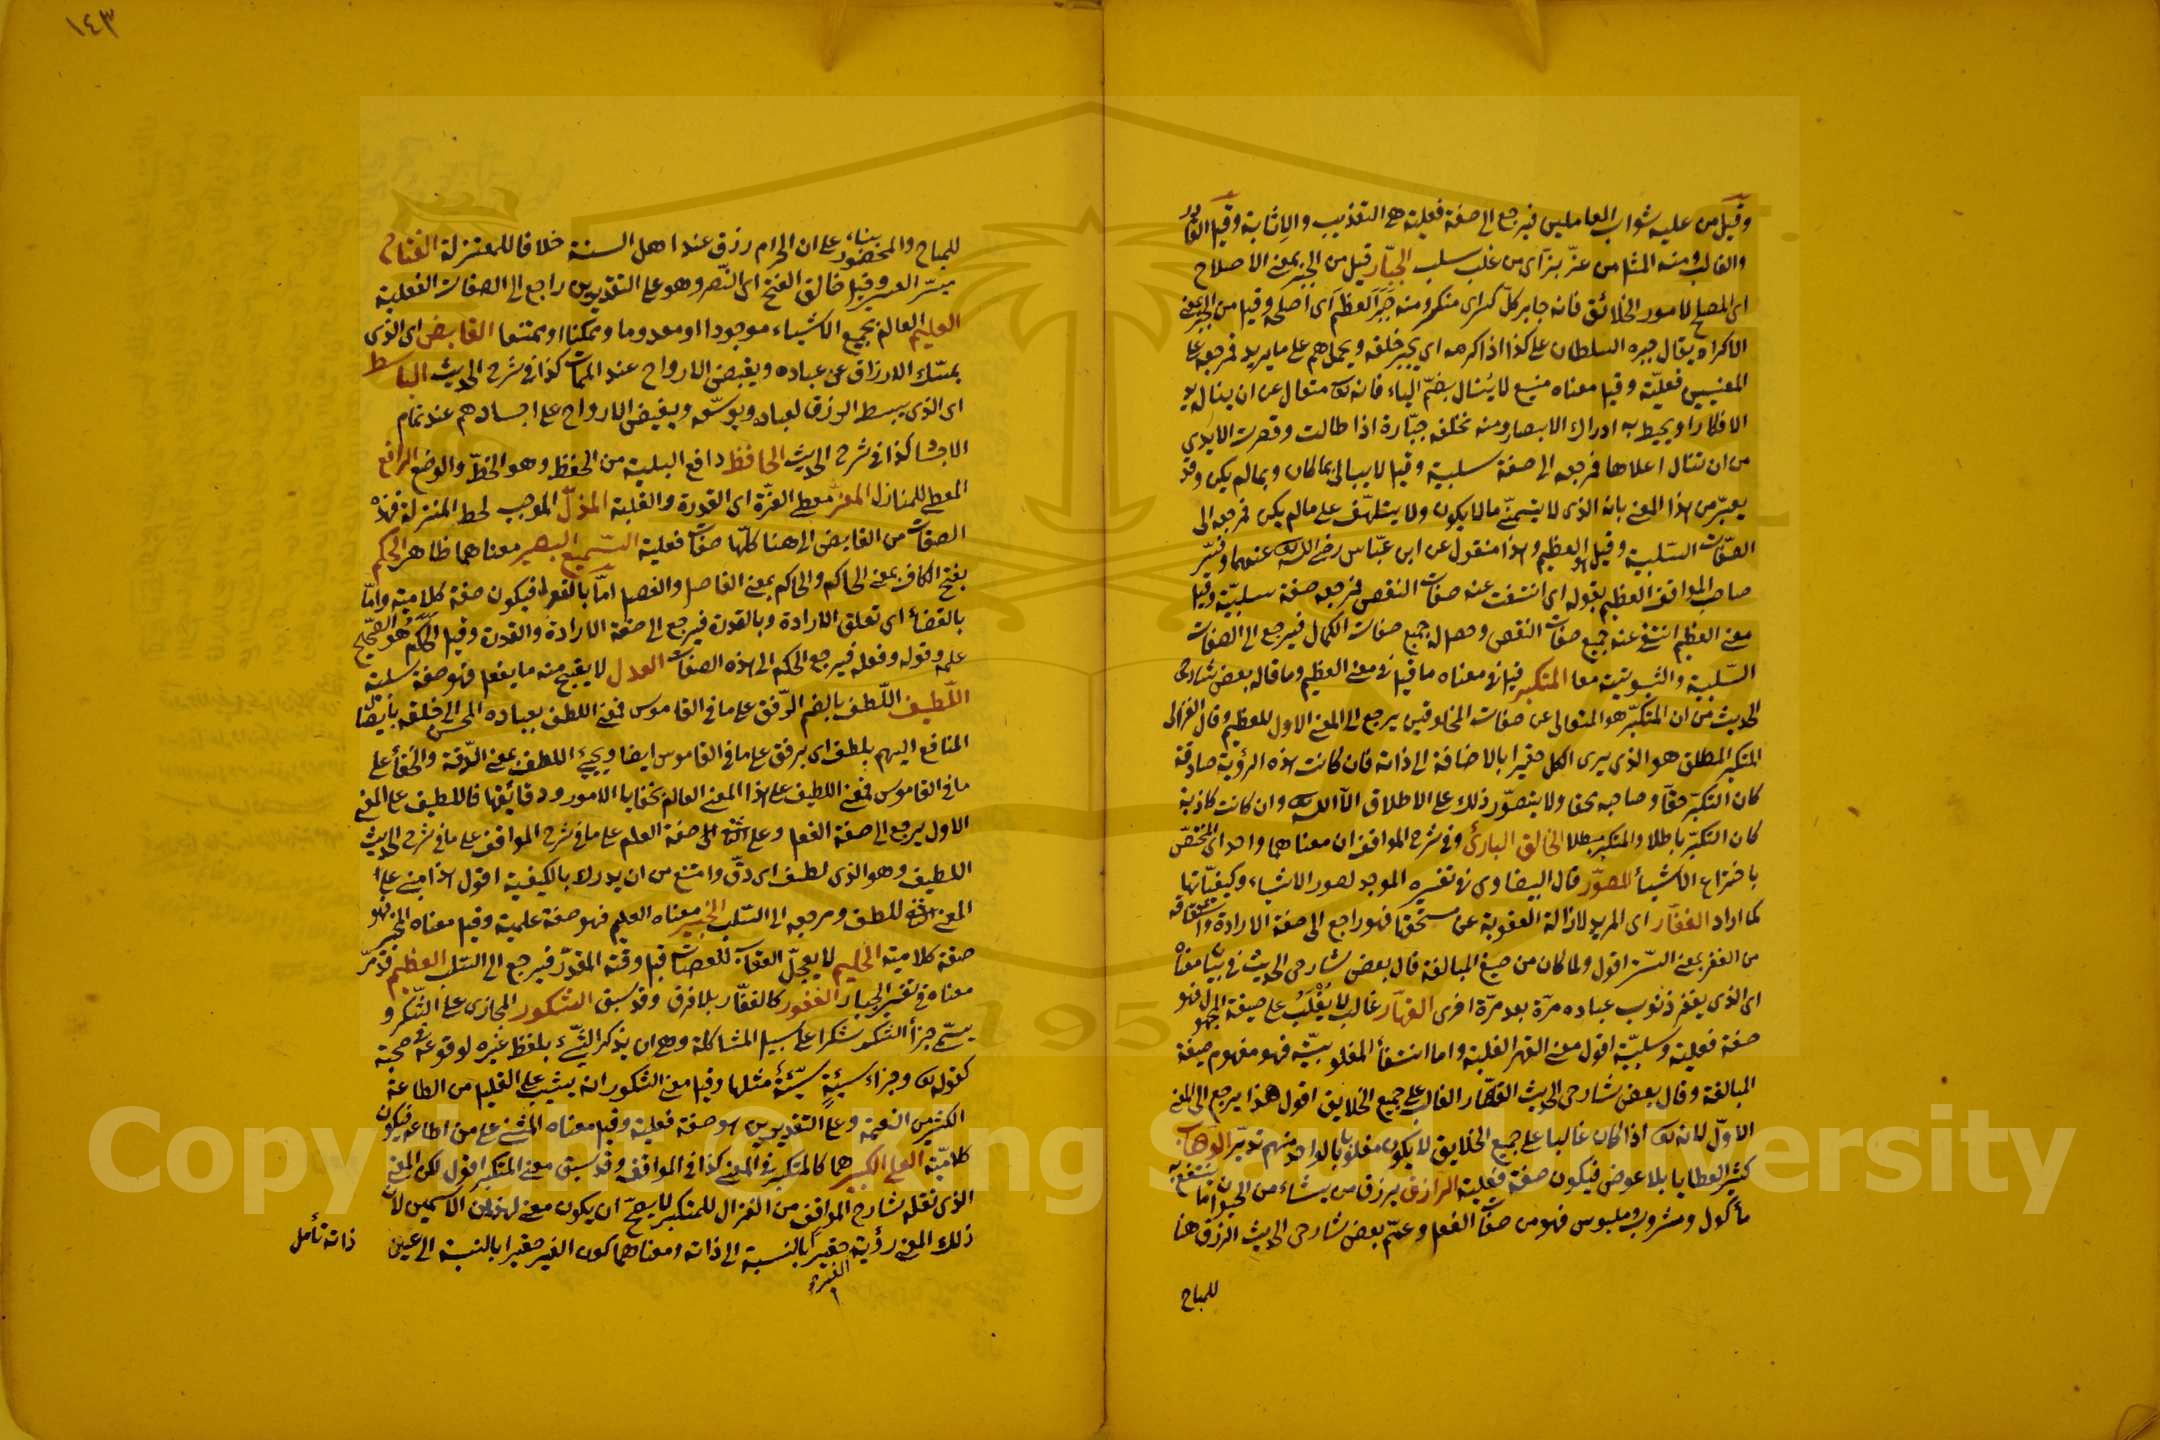 وقيل من عليه ثواب العاملين فيرجع الى صفة فعلية هى التعذيب والاثابة وقيل القادر
والغالب ومنه المثل من عز بز اى من غلب سلب الجبّار قيل من الجبر بمعنى الاصلاح
اى المصلح لامور الخلائق فانه جابر كل كسر اى منكسر ومنه جبر العظم اى اصلحه وقيل من الجبر بمعنى
الاكراه يقال جبره السلطان على كذا اذا اكرهه اى يجبر خلقه ويحملهم على ما يريد فمرجعه على
المعنيين فعليّة وقيل معناه منيع لا يُنال بضمّ الياء فانه تعالى متعال عن ان يناله يد
الافكار او يحيط به ادراك الابصار ومنه نخلة جبّارة اذا طالت وقصرت الايدى
من ان تنال اعلاها فمرجعه الى صفة سلبية وقيل لا يبالى بما كان وبما لم يكن وقد
يعبّر من هذا المعنى بانه الذى لا يتمنّى ما لا يكون ولا يتلهّف على ما لم يكن فمرجعه الى
الصّفات السّلبية وقيل هو العظيم وهذا منقول عن ابن عبّاس رضى الله تعالى عنهما وفسّر
صاحب المواقف العظيم بقوله اى انتفت عنه صفات النقص فمرجعه صفة سلبيّة وقيل
معنى العظيم انتفى عنه جميع صفات النقص وحصل له جميع صفات الكمال فيرجع الى الصفات
السّلبية والثبوتية معا المتكبر قيل فى معناه ما قيل فى معنى العظيم وما قاله بعض شارحى
الحديث من ان المتكبّر هو المتعالى عن صفات المخلوقين يرجع الى المعنى الاول للعظيم وقال الغزالى
المتكبر المطلق هو الذى يرى الكل حقيرا بالاضافة الى ذاته فان كانت هذه الرؤية صادقة
كان التكبّر حقّا وصاحبه محقا ولا يتصوّر ذلك على الاطلاق الّا لله تعالى وان كانت كاذبة
كان التكبّر باطلا والمتكبّر مبطلا الخالق البارئ وفى شرح المواقف ان معناهما واحد اى المختصّ
باختراع الاشياء المصوّر قال البيضاوى فى تفسيره الموجد لصور الاشياء وكيفيّاتها
كما اراد الغفّار اى المريد لازالة العقوبة عن مستحقها فهو راجع الى صفة الارادة واشتقاقه
من الغفر بمعنى السّتر اقول ولما كان من صيغ المبالغة قال بعض شارحى الحديث فى بيان معناه
اى الذى يغفر ذنوب عباده مرّة بعد مرّة اخرى القهّار غالب لا يُغْلَبُ على صيغة المجهول فهو
صفة فعلية وسلبيّة اقول معنى القهر الغلبة واما انتفاء المغلوبيّة فهو مفهوم صيغة
المبالغة وقال بعض شارحى الحديث القهّار الغالب على جميع الخلايق اقول هذا يرجع الى المعنى
الاوّل لانه تعالى اذا كان غالبا على جميع الخلايق لا يكون مغلوبا لواحد منهم تدبّر الوهّاب
كثير العطايا بلا عوض فيكون صفة فعلية الرّازق يرزق من يشاء من الحيوان ما ينتفع به
مأكول ومشروب وملبوس فهو من صفات الفعل وعمّم بعض شارحى الحديث الرزق هنا
للمباح
١٤٣
للمباح والمحضور بناء على ان الحرام رزق عند اهل السنة خلافا للمعتزلة الفتاح
ميسّر العسير وقيل خالق الفتح اى النّصر وهو على التقديرين راجع الى الصفات الفعلية
العليم العالم بجميع الاشياء موجودا او معدوما وممكنا او ممتنعا القابض اى الذى
يمسك الارزاق عن عباده ويقبض الارواح عند الممات كذا فى شرح الحديث الباسط
اى الذى يبسط الرزق لعباده ويوسّعه ويفيض الارواح على اجسادهم عند تمام
الاجساد كذا فى شرح الحديث الخافض دافع البلية من الخفض وهو الحطّ والوضع الرافع
المعطى للمنازل المعزّ معطى العزّة اى القدرة والغلبة المذلّ الموجب لحط المنزلة فهذه
الصفات من القابض الى هنا كلّها صفات فعلية السّميع البصير معناهما ظاهر الحكم
بفتح الكاف بمعنى الحاكم والحاكم بمعنى الفاصل والفصل امّا بالقول فيكون صفة كلامية وامّا
بالقضاء اى تعلق الارادة وبالقدرة فيرجع الى صفة الارادة والقدرة وقيل الحَكَم هو الصّحيح
علمه وقوله وفعله فيرجع الحكم الى هذه الصفات العدل لا يقبح منه ما يفعل فهو صفة سلبية
اللّطيف اللّطف بالضم الرّفق على ما فى القاموس فمعنى اللطف بعباده المحسن الى خلقه بايصال
المنافع اليهم بلطف اى برفق على ما فى القاموس ايضا ويجئ اللطف بمعنى الدّقة والخفاء على
ما فى القاموس فمعنى اللطيف على هذا المعنى العالم بخفايا الامور ودقائقها فاللطيف على المعنى
الاول يرجع الى صفة الفعل وعلى الثانى الى صفة العلم على ما فى شرح المواقف على ما فى شرح الحديث
اللطيف وهو الذى لطف اى دقّ وامتنع من ان يدرك بالكيفية اقول هذا مبنى على
المعنى الثانى للطف ومرجعه الى السّلب الخبير معناه العليم فهو صفة علمية وقيل معناه المخبر فهو
صفة كلامية الحليم لا يعجّل العقاب للعصاة قبل وقته المقدّر فيرجع الى السّلب العظيم قد مرّ
معناه فى تفسير الجبار الغفور كالغفّار بلا فرق وقد سبق الشكور المجازى على الشّكر و
يسمّى جزاء الشّكر شكرا على سبيل المشاكلة وهى ان يذكر الشّئ بلفظ غيره لوقوعه فى صحبته
كقوله تعالى وجزاء سيئةٍ سيّئةٌ مثلها وقيل معنى الشكور انه يثيب على القليل من الطاعة
الكثير من النعمة وعلى التقديرين هو صفة فعلية وقيل معناه المثنى على من اطاعه فيكون
كلاميّة العلى الكبير هما كالمتكبر فى المعنى كذا فى المواقف وقد سبق معنى المتكبر اقول لكن المعنى
الذى نقله شارح المواقف من الغزالى للمتكبر لا يصحّ ان يكون معنى لهذين الاسمين لانّ
ذلك المعنى رؤية الغير حقيرا بالنسبة الى ذاته ومعناهما كون الغير حقيرا بالنسبة الى عين
ذاته تأمل